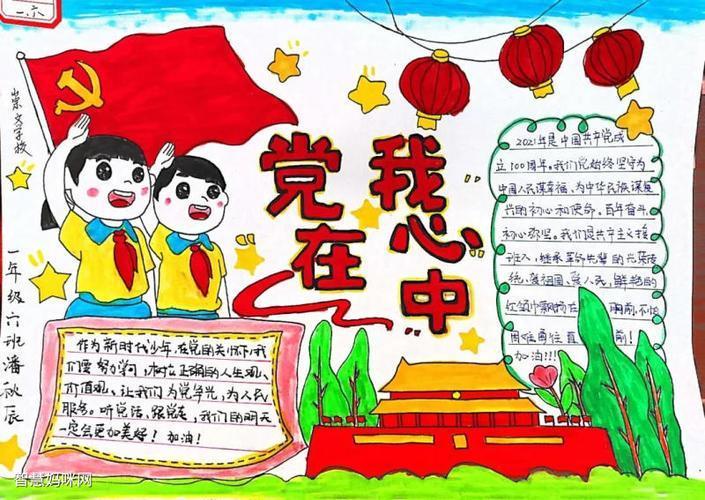 一.六
崇文学校
一年级六班潘秋辰
党在
我心中
2021年是中国共产党成
立100周年。我们党始终坚守为
中国人民谋幸福,为中华民族谋复
兴的初心和使命。百年奋斗,
初心弥坚。我们是共产主义接
班人,继承革命先辈的光荣传
统,爱祖国,爱人民,鲜艳的
红领巾飘扬在 胸前,不怕
困难 前!
加油!!!
作为新时代少年,在党的关怀下,我
们要努力学习,树立正确的人生观、
价值观、让我们为党争光,为人民
服务。听党话,跟党走,我们的明天
一定会更加美好!加油!
智慧妈咪网